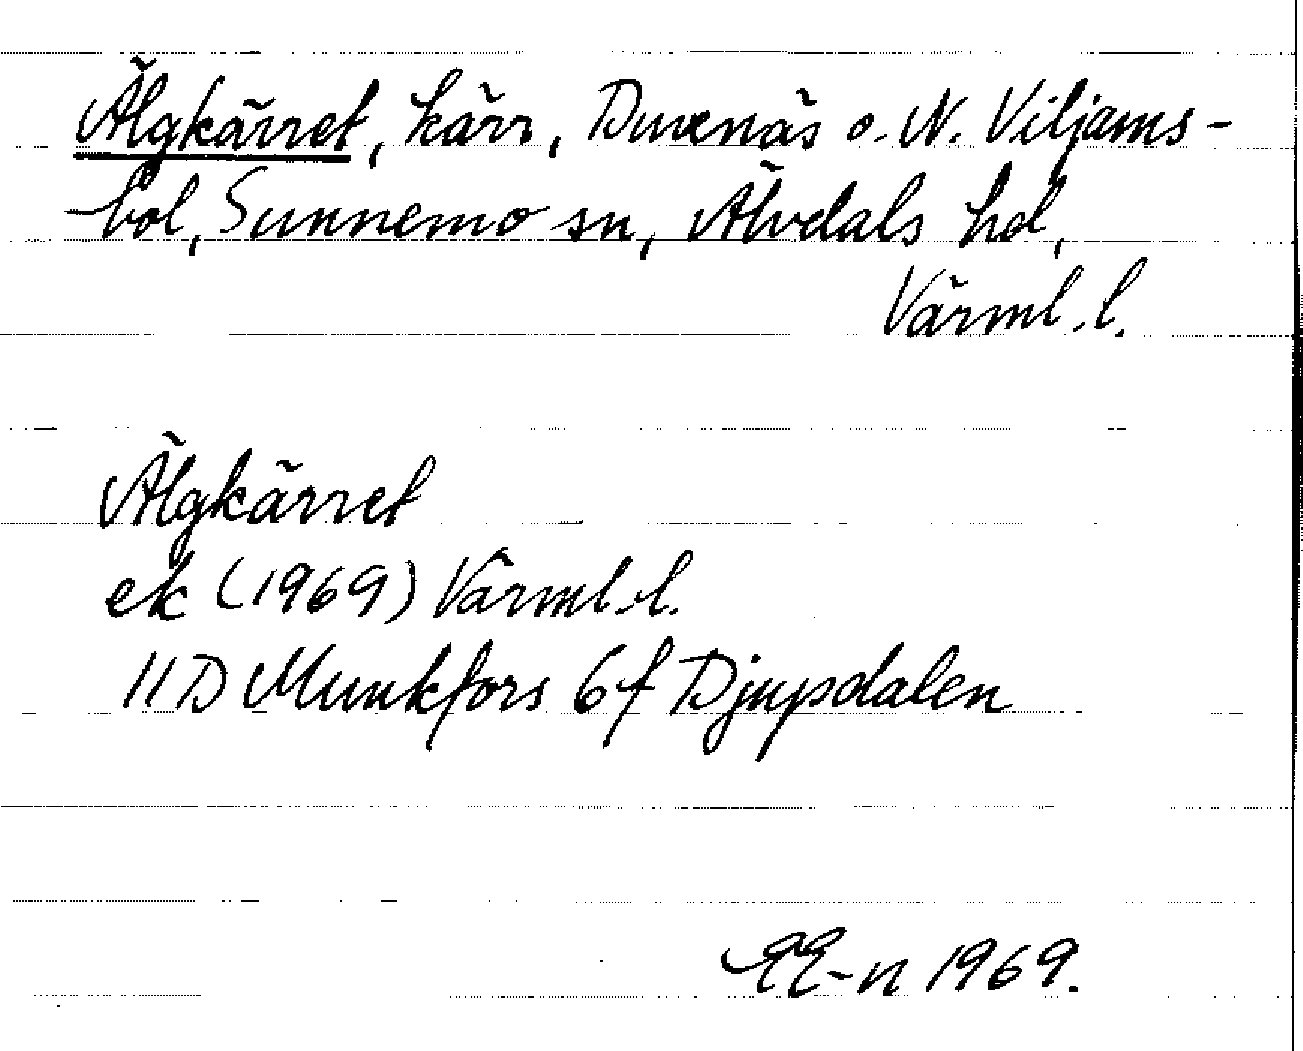 Älgkärret, kärr, Duvenäs o. N. Viljams-
bol, Sunnemo sn, Älvdals hd,
Värml. l.
Älgkärret
ek (1969) Värml. l.
11D Munkfors 6f Djupsdalen
EE-n 1969.